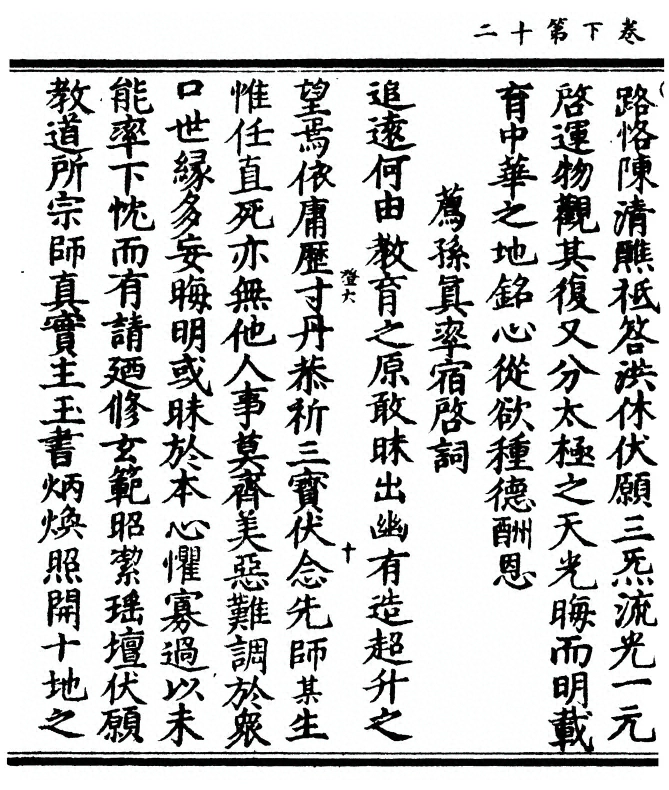 卷下第十二
路恪陳清醮祇答洪休伏願三炁流光一元
啓運物觀其復又分太極之天光晦而明載
育中華之地銘心從欲種德酬恩
薦孫真率宿啓詞
追遠何由教育之原敢昧出幽有造超升之
望焉依庸歷寸丹恭祈三寳伏念先師某生
惟任直死亦無他人事莫齊美惡難調於衆
口世緣多妄晦明或昧於本心懼寡過以未
能率下忱而有請廼修玄範昭潔瑶壇伏願
教道所宗師真實主玉書炳煥照開十地之